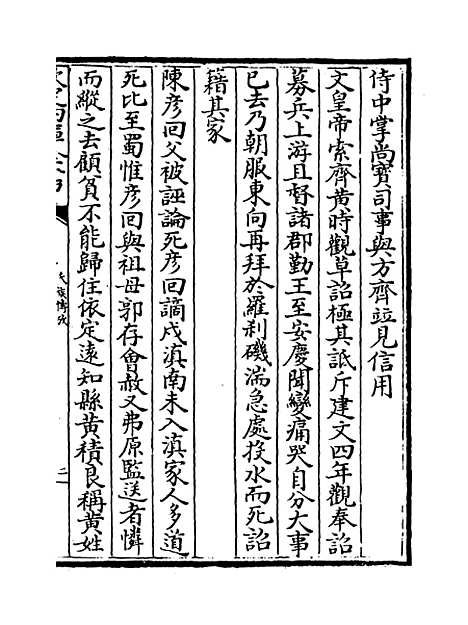 侍中掌尚寶司事與方齊竝見信用
文皇帝索齊黄時觀草詔極其詆斥建文四年觀奉詔
募兵上游且督諸郡勤王至安慶聞變痛哭自分大事
已去乃朝服東向再拜於羅刹磯湍急處投水而死詔
藉其家
陳彦回父被誣論死彦回謫戍滇南未入滇家人多道
死比至蜀惟彦回與祖母郭存會赦又弗原監送者憐
而縱之去顧貧不能歸往依定遠知縣黄積良稱黄姓
二